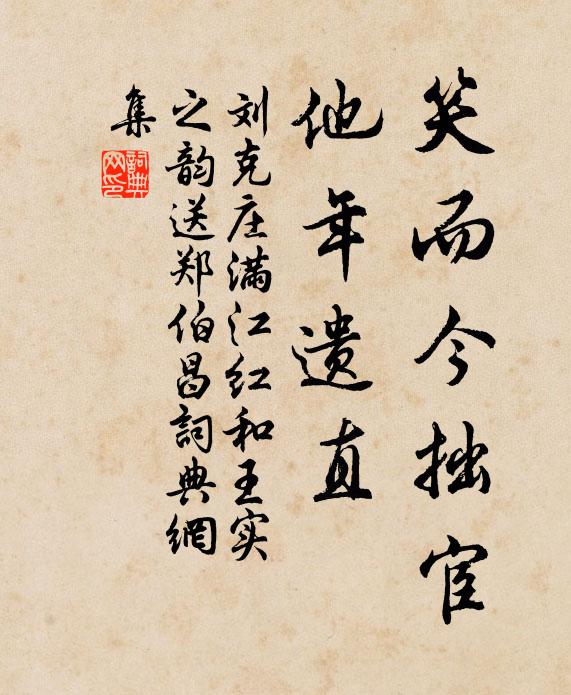 笑而今拙宦
他年遗直
刘克庄满江红和王实
之韵送郑伯昌詞典網
集
詞典
网印